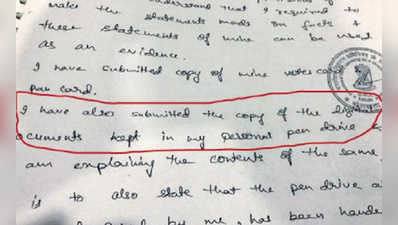 make the statements made on facts &
these statements of mine can be used
as an evidence.
I have submitted copy of mine voter card
pan card.
I have also submitted the copy of the
ocuments kept in my personal pen drive
am explaining the contents of the same
is to also state that the pen drive
by me, has been hande